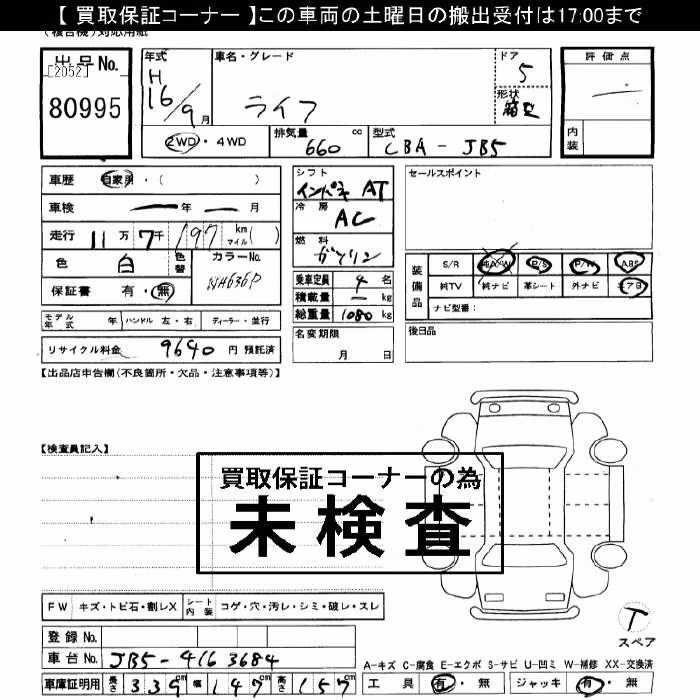 【 買取保証コーナー 】この車両の土曜日の搬出受付は17:00まで
(複合機)対応用紙
出品No.
[2052]
80995
年式
H
16/9月
車名・グレード
ライフ
ドア
5
形状
箱型
評価点
内装
2WD ・ 4WD
排気量 660 cc
型式 CBA - JB5
車歴 自家用 ・ ( )
車検 ー 年 ー 月
走行 11万 7千 197 km マイル ( )
色 白
色替
カラーNo. NH636P
保証書 有・無
モデル年式 年
ハンドル 左・右
ディーラー・並行
リサイクル料金 9640 円 預託済
シフト
インパネ AT
冷房
AC
燃料
ガソリン
乗車定員 4 名
積載量 ー kg
総重量 1080 kg
名変期限
月 日
セールスポイント
装備品
S/R 純A×W P/S P/W ABS
純TV 純ナビ 革シート 外ナビ エアB
ナビ型番:
後日品
【出品店申告欄(不良箇所・欠品・注意事項等)】
【検査員記入】
買取保証コーナーの為
未検査
FW キズ・トビ石・割レX
シート内装 コゲ・穴・汚レ・シミ・破レ・スレ
登録 No.
車台 No. JB5-4163684
車庫証明用 長さ 339cm 幅 147cm 高さ 157cm
T
スペア
A-キズ C-腐食 E-エクボ S-サビ U-凹ミ W-補修 XX-交換済
工具 有・無 ジャッキ 有・無